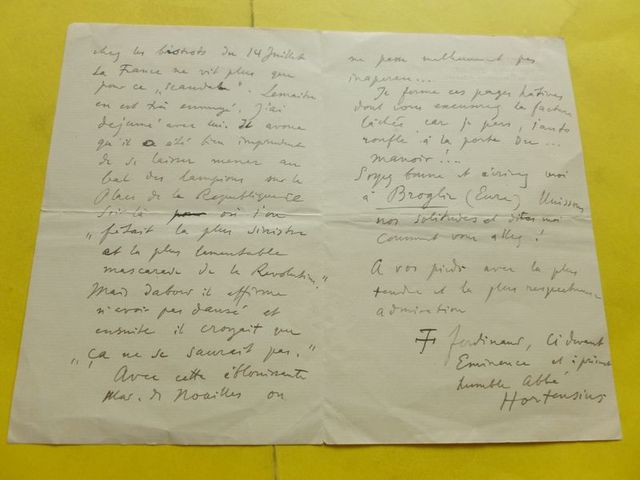 chez les bistrots du 14 Juillet
La France ne vit plus que
pour ce „scandale". Lemaitre
en est très ennuyé, j'ai
dejeuné avec lui. Il avoue
qu'il a été bien imprudent
de se laisser mener au
bal des lampions sur la
Place de la Republique ce
soir là où l'on
„fêtait la plus sinistre
et la plus lamentable
mascarade de la Revolution."
Mais d'abord il affirme
n'avoir pas dansé et
ensuite il croyait que
„ça ne se saurait pas."
Avec cette éblouissante
Mad. de Noailles on
ne passe malheureusement pas
inaperçu...
Je ferme ces pages hâtives
dont vous excuserez la facture
lâchée car je pars, l'auto
ronfle à la porte du...
manoir!...
Soyez bonne et écrivez moi
à Broglie (Eure) Unissons
nos solitudes et dites moi
comment vous allez!
A vos pieds avec la plus
tendre et la plus respectueuse
admiration
Ferdinand, ci devant
Eminence et
humble Abbé
Hortensius